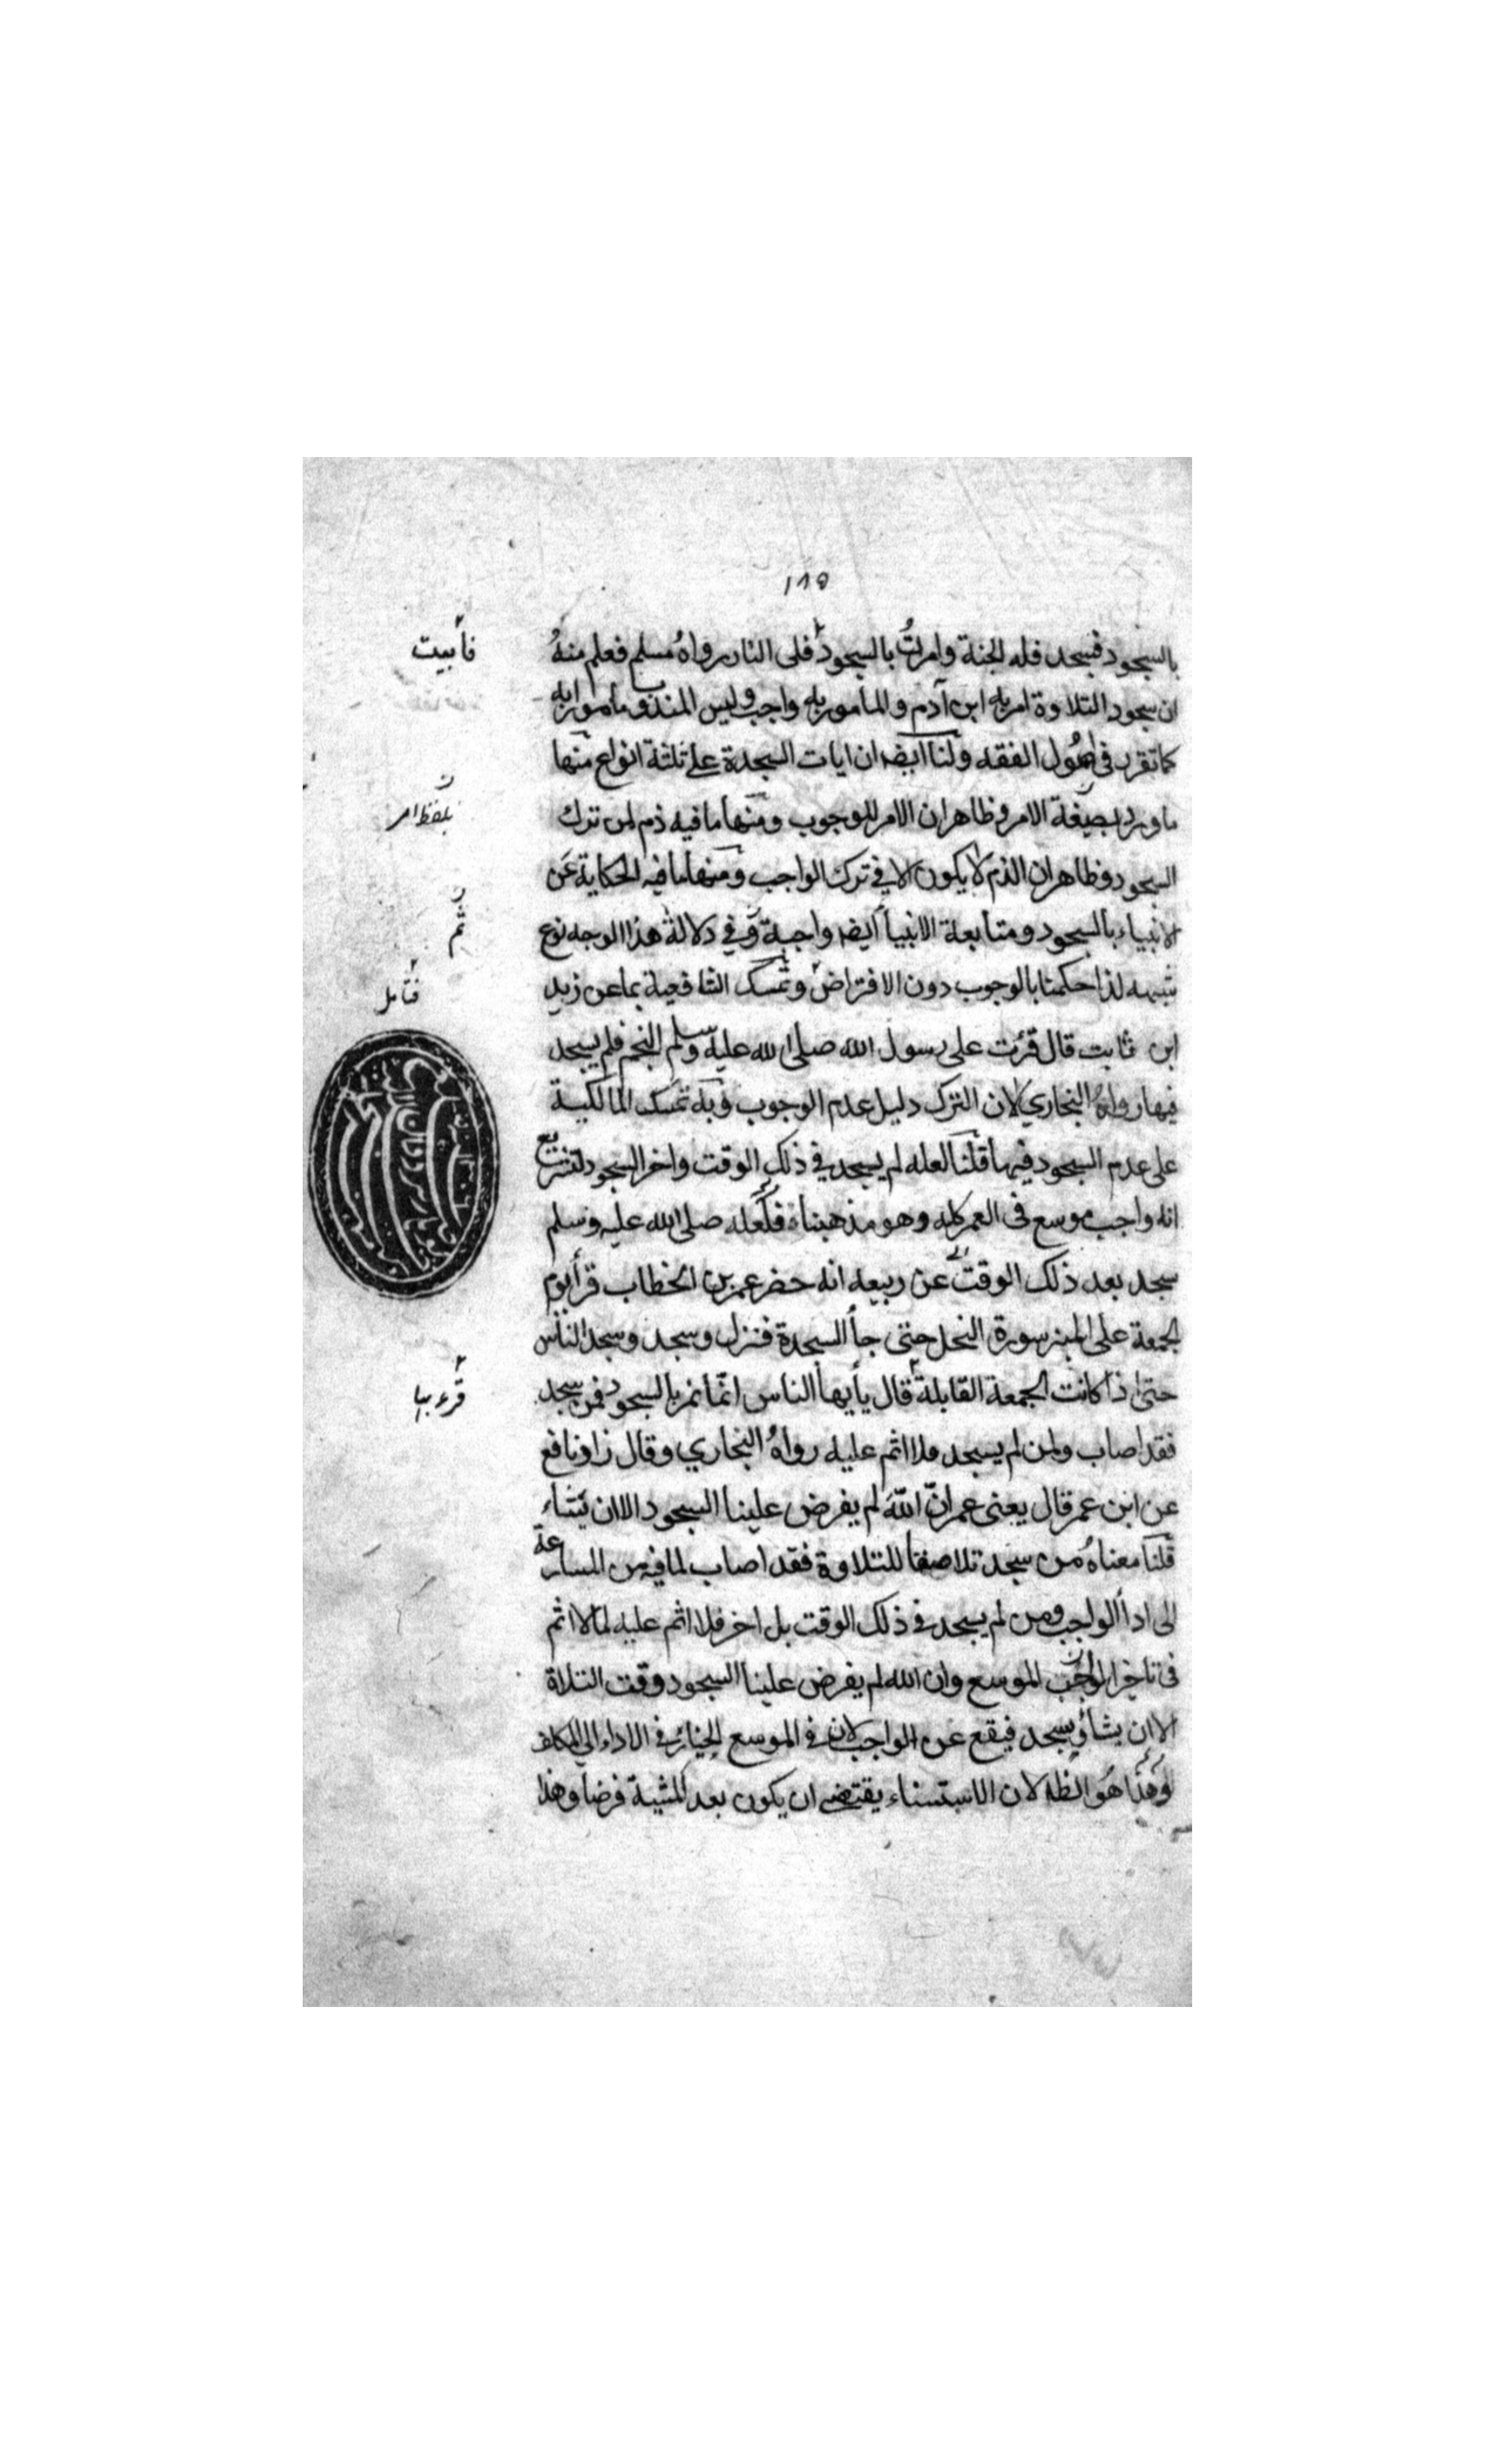 ١٨٥
بالسجود فسجد فله الجنة وامرتُ بالسجود فلى النار رواهُ مسلم فعلم منهُ
فأبيت
ان سجود التلاوة امر به ابن آدم والمأمور به واجب وليس المندوب مأمورا به
كما تقرر فى اصُول الفقه ولنا ايضا ان ايات السجدة على ثلثة انواع منها
ما ورد بصيغة الامر وظاهر ان الامر للوجوب ومنها ما فيه ذم لمن ترك
بلفظ امر
السجود وظاهر ان الذم لا يكون الا في ترك الواجب ومنها ما فيه الحكاية عن
الانبياء بالسجود ومتابعة الانبيأ ايضا واجبة وفي دلالة هذا الوجه نوع
ثم
شبهه لذا حكمنا بالوجوب دون الافتراض وتمسك الشافعية بما عن زيد
فتأمل
ابن ثابت قال قرئت على رسول الله صلى الله عليه وسلم النجم فلم يسجد
فيها رواهُ البخاري لان الترك دليل عدم الوجوب وبه تمسك المالكية
على عدم السجود فيها قلنا لعله لم يسجد في ذلك الوقت واخر السجود لتشريع
انه واجب موسع فى العمر كله وهو مذهبنا فلعله صلى الله عليه وسلم
سجد بعد ذلك الوقت عن ربيعه انه حضر عمر بن الخطاب قرأ يوم
الجمعة على المنبر سورة النحل حتى جأ السجدة فنزل وسجد وسجد الناس
حتى اذا كانت الجمعة القابلة قال يأيها الناس انما نمر بالسجود فمن سجد
قرء بها
فقد اصاب ومن لم يسجد فلا اثم عليه رواهُ البخاري وقال زاد نافع
عن ابن عمر قال يعنى عمر انّ اللّه لم يفرض علينا السجود الا ان نشاء
قلنا معناهُ من سجد للتلاوة فقد اصاب لما فيه من المسارعة
الى ادأ الواجب ومن لم يسجد في ذلك الوقت بل اخر فلا اثم عليه لما لا اثم
فى تاخير الواجب الموسع وان الله لم يفرض علينا السجود وقت التلاة
الا ان يشأ ويسجد فيقع عن الواجب لان في الموسع الخيار في الاداء الى المكلف
وهذا هُو الظه لان الاستسناء يقتضى ان يكون بعد المشية فرضا وهذا